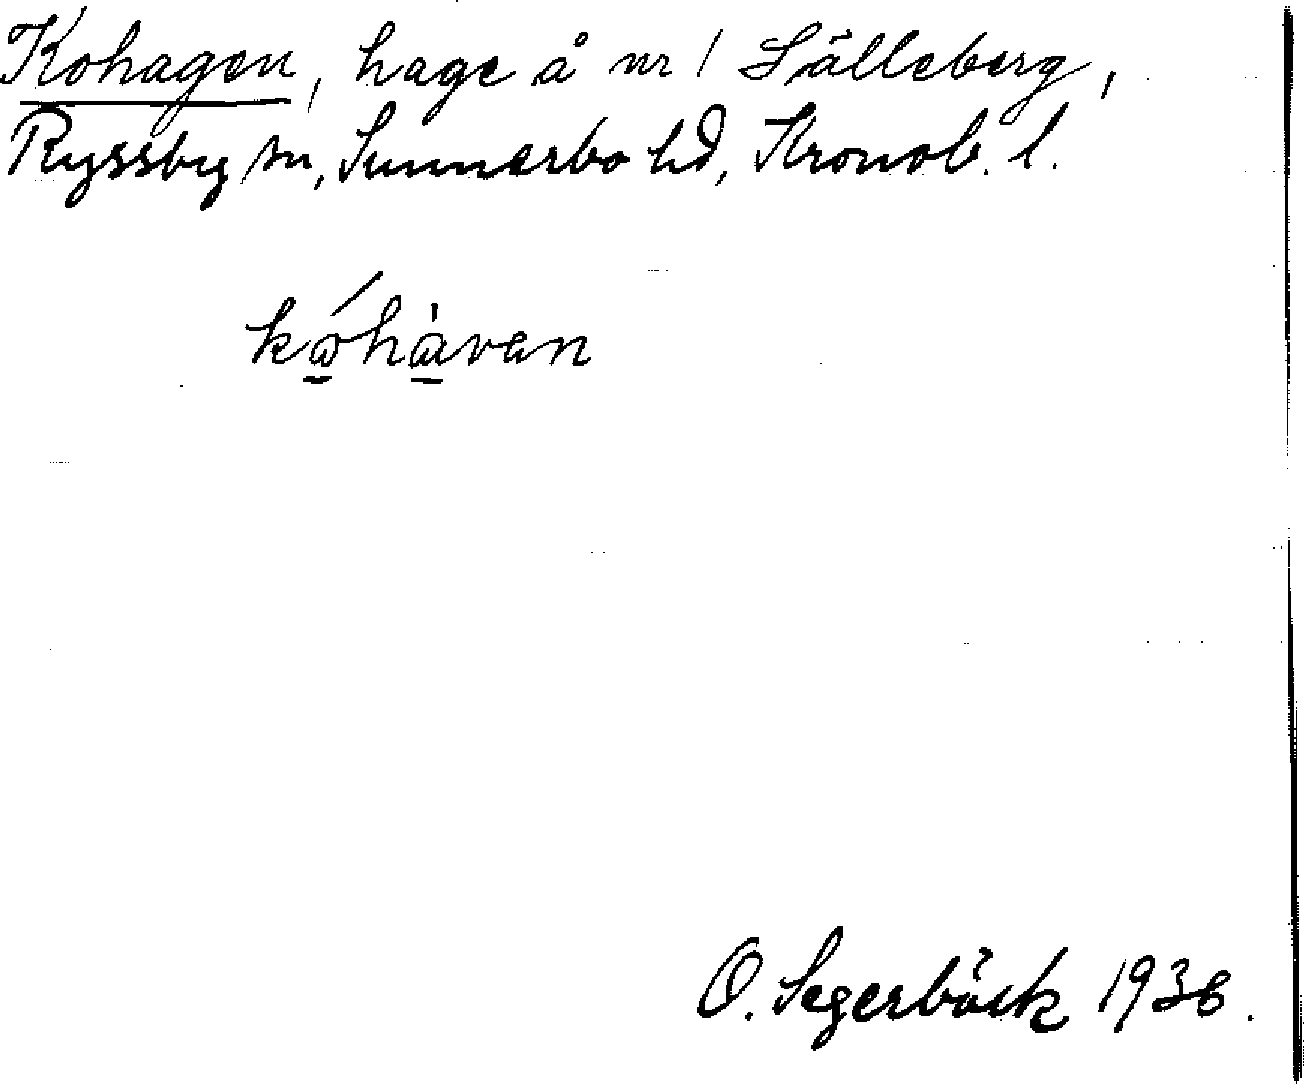 Kohagen, hage å nr 1 Sälleberg,
Ryssby sn, Sunnerbo hd, Kronob. l.
kóhàvan
O. Segerbäck 1936.